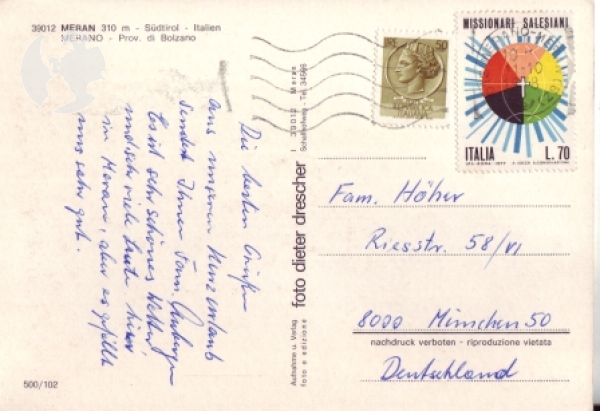 39012 MERAN 310 m - Südtirol - Italien
MERANO - Prov. di Bolzano
50
MISSIONARI SALESIANI
ITALIA L. 70
Die besten Grüße
aus unserem Kurzurlaub
sendet Ihnen Fam.
Es ist sehr schönes Wetter
und sehr viele Leute hier
in Meran, aber es gefällt
uns sehr gut.
500/102
Aufnahme u. Verlag
foto e edizione
foto dieter drescher
I 39012 Meran
Tel. 34566
Fam. Höher
Riesstr. 58/VI
8000 München 50
nachdruck verboten - riproduzione vietata
Deutschland